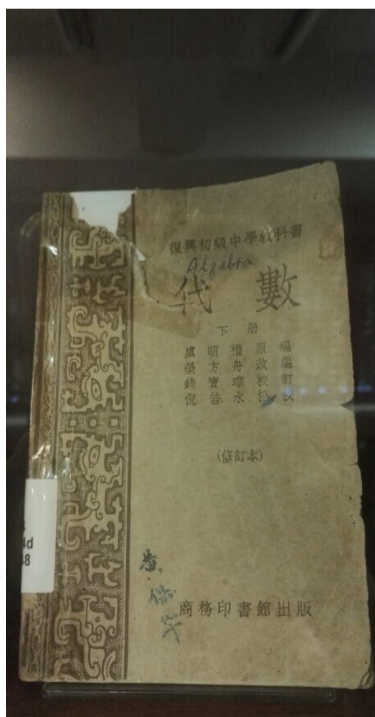 復興初級中學教科書
Algebra
代數
下册
虞明禮原編
榮方舟改編
錢寶琮校訂
倪若水校
(修訂本)
商務印書館出版
黃
4d